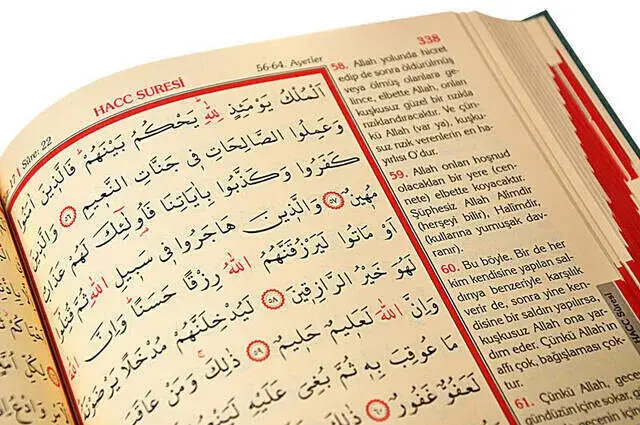 338
56-64. Ayetler
HACC SURESİ
17 / Sûre: 22
اَلْمُلْكُ يَوْمَئِذٍ لِلّٰهِ يَحْكُمُ بَيْنَهُمْ فَالَّذ۪ينَ اٰمَنُوا
وَعَمِلُوا الصَّالِحَاتِ ف۪ي جَنَّاتِ النَّع۪يمِ ﴿٥٦﴾ وَالَّذ۪ينَ
كَفَرُوا وَكَذَّبُوا بِاٰيَاتِنَا فَاُو۬لٰٓئِكَ لَهُمْ عَذَابٌ
مُه۪ينٌ ﴿٥٧﴾ وَالَّذ۪ينَ هَاجَرُوا ف۪ي سَب۪يلِ اللّٰهِ ثُمَّ قُتِلُٓوا
اَوْ مَاتُوا لَيَرْزُقَنَّهُمُ اللّٰهُ رِزْقًا حَسَنًا وَاِنَّ اللّٰهَ
لَهُوَ خَيْرُ الرَّازِق۪ينَ ﴿٥٨﴾ لَيُدْخِلَنَّهُمْ مُدْخَلًا يَرْضَوْنَهُ
وَاِنَّ اللّٰهَ لَعَل۪يمٌ حَل۪يمٌ ﴿٥٩﴾ ذٰلِكَ وَمَنْ عَاقَبَ
مَا عُوقِبَ بِه۪ ثُمَّ بُغِيَ عَلَيْهِ
لَعَفُوٌّ غَفُورٌ ﴿٦٠﴾ ذٰلِكَ
58. Allah yolunda hicret
edip de sonra öldürülmüş
veya ölmüş olanlara ge-
lince, elbette Allah, onları
kuşkusuz güzel bir rızıkla
rızıklandıracaktır. Ve çün-
kü Allah (var ya), kuşku-
suz rızık verenlerin en ha-
yırlısı O'dur.
59. Allah onları hoşnud
olacakları bir yere (cen-
nete) elbette koyacaktır.
Şüphesiz Allah Alîmdir
(herşeyi bilir), Halîmdir,
(kullarına yumuşak dav-
ranır).
60. Bu böyle. Bir de her
kim kendisine yapılan sal-
dırıya benzeriyle karşılık
verir de, sonra yine ken-
disine bir saldırı yapılırsa,
kuşkusuz Allah ona yar-
dım eder. Çünkü Allah'ın
affı çok, bağışlaması çok-
tur.
61. Çünkü Allah, gece
gündüzün içine sokar,
HACC Sûresi